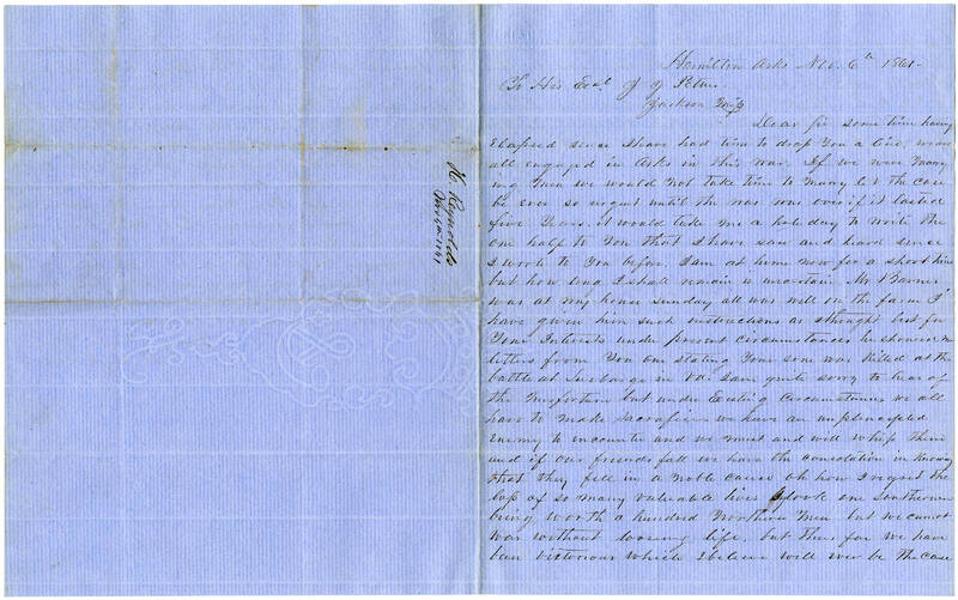 H. Reynolds
Nov 6th 1861
Hamilton Arks Nov. 6th 1861-
To His Excl J J Pettus
Jackson Miss
Dear Sir some time having
Elapsed since I have had time to drop You a line, we are
all engaged in Arks in this war. If we were marry
ing men we would not take time to marry let the case
be ever so urgent until the war was over if it lasted
five Years. it would take me a holiday to write the
one half to You that I have saw and heard since
I wrote to You before. I am at home now for a short time
but how long I shall remain is uncertain Mr Barnes
was at my house sunday all was well on the farm I
have given him such instructions as I thought best for
Your Interests under present circumstances he showed me
letters from You one stating Your sone was killed at the
battle at Leesburge in Va. I am quite sorry to hear of
the Misfortune but under Existing Circumstances we all
have to make sacrafices we have an unprincipled
Enemy to encounter and we must and will whip them
and if our friends fall we have the consolation in knowing
that they fell in a noble cause oh how I regret the
loss of so many valuable lives I look one southern
being worth a hundred Northern Men but we cannot
war without loosing life, but thus far we have
been victorious which I believe will ever be the case